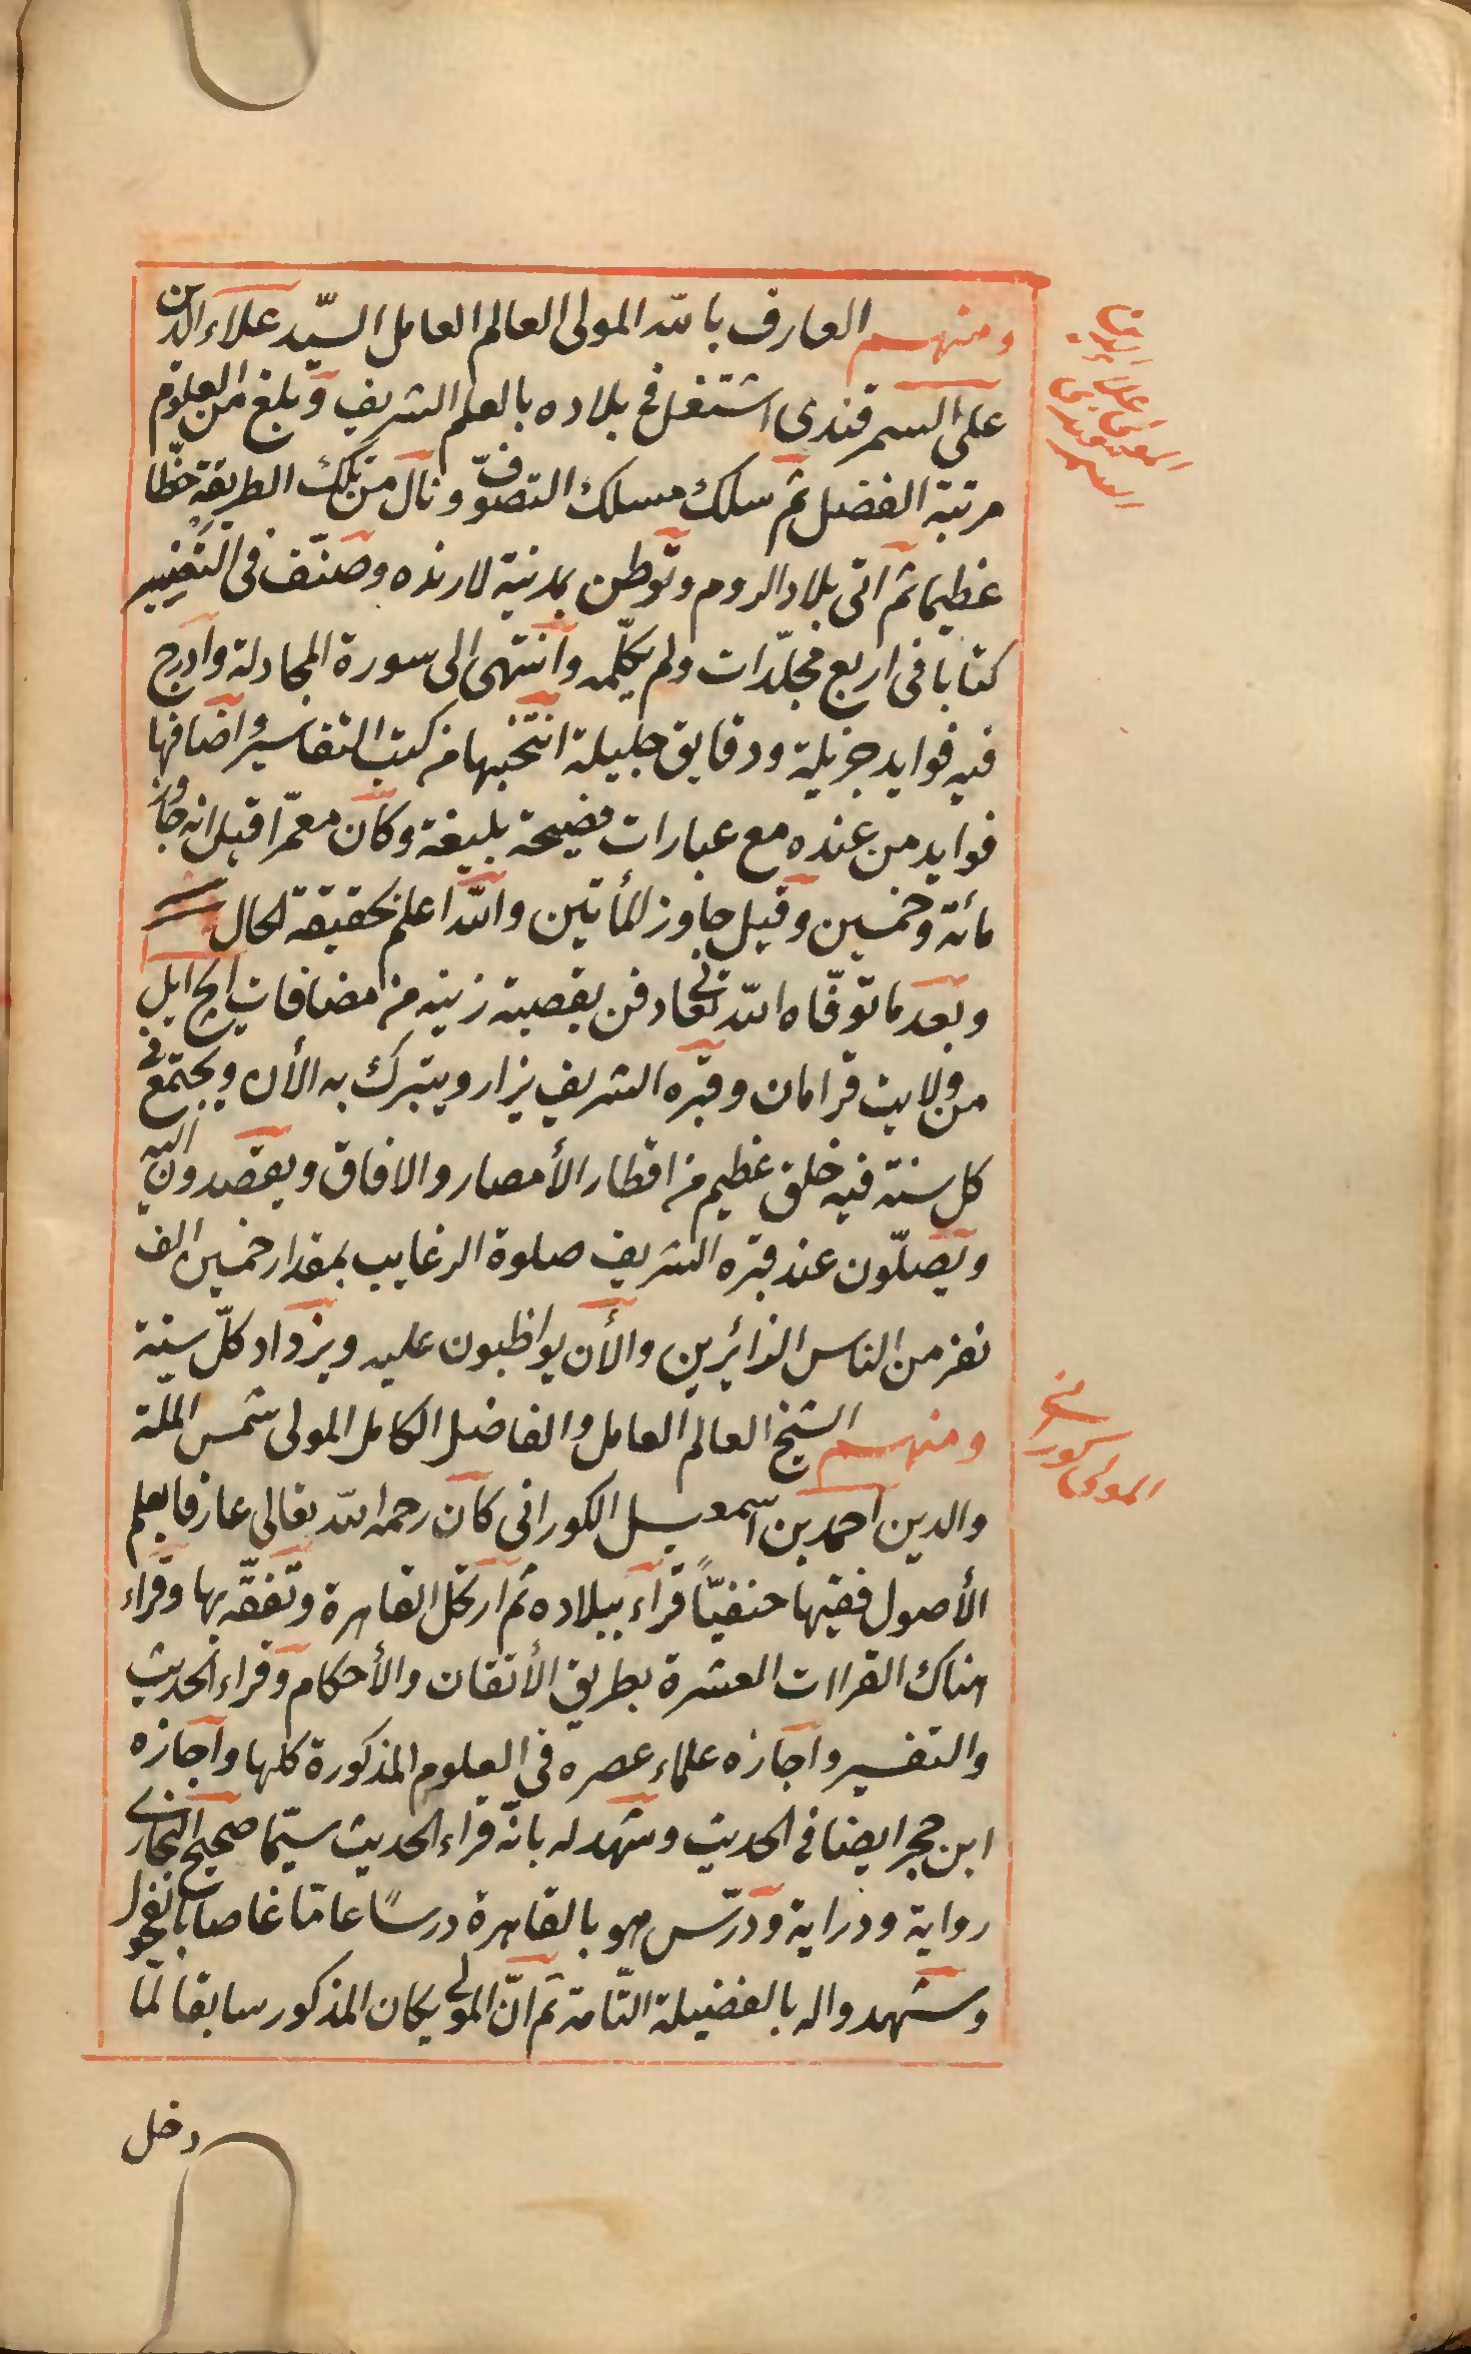 ومنهم العارف بالله المولى العالم العامل السيّد علاء الدين
على السمرقندى اشتغل فى بلاده بالعلم الشريف وبلغ من العلوم
مرتبة الفضل ثم سلك مسلك التصوّف ونال من تلك الطريقة حظّا
عظيما ثم اتى بلاد الروم وتوطن بمدينة لارنده وصنّف فى التفسير
كتابا فى اربع مجلّدات ولم يكلمه وانتهى الى سورة المجادلة وادرج
فيه فوايد جزيلة ودقايق جليلة انتخبها من كتب التفاسير واضافها
فوايد من عنده مع عبارات فصيحة بليغة وكان معمّرا قيل انه جاوز
مائة وخمسين وقيل جاوز المأتين والله اعلم بحقيقة الحال
وبعد ما توفّاه الله تعالى دفن بقصبة زينه من مضافات ايج ايل
من ولايت قرامان وقبره الشريف يزار ويتبرك به الأن ويجتمع فى
كل سنة فيه خلق عظيم من اقطار الأمصار والافاق ويقصدون اليه
ويصلّون عند قبره الشريف صلوة الرغايب بمقدار خمسين الف
نفر من الناس الزائرين والأن يواظبون عليه ويزداد كلّ سنة
ومنهم الشيخ العالم العامل والفاضل الكامل المولى شمس الملة
والدين احمد بن اسمعيل الكورانى كان رحمه الله تعالى عارفا بعلم
الأصول فقيها حنفيّاً قراء ببلاده ثم ارتحل القاهرة وتفقّه بها وقراء
هناك القراات العشرة بطريق الأتقان والأحكام وقراء الحديث
والتفسير واجازه علماء عصره فى العلوم المذكورة كلها واجازه
ابن حجر ايضا فى الحديث وشهد له بانّه قراء الحديث سيّما صحيح البخارى
رواية ودراية ودرّس هو بالقاهرة درسًا عامّا غاصا بالفحول
وشهدوا له بالفضيلة التّامة ثم انّ المولى يكان المذكور سابقا لما
دخل
المولى كورانى